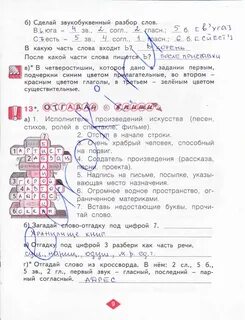 б) Сделай звукобуквенный разбор слов.
Вьюга – 4 зв. 2 согл. 2 гласн.; 5 б.
Съесть – 5 зв. 4 согл. 1 гласн.; 6 б.
В какую часть слова входит в? В корень
После какой части слова пишется ъ? После приставки
в) В четверостишии, которое дано в задании первым, подчеркни синим цветом прилагательные, во втором – красным цветом глаголы, в третьем – зелёным цветом существительные.
13*. ОТГАДАЙ
1. Исполнители произведений искусства (песен, стихов, ролей в спектакле, фильме)
2. Отступ в начале строки.
3. Очень храбрый человек, способный на подвиг.
4. Создатель произведения (рассказа, песни проекта)
5. Надпись на письме, посылке, указывающая место назначения.
6. Огромное водное пространство, ограниченное материками.
7. Вставь недостающие буквы, прочитай слово.
б) Загадай слово-отгадку под цифрой 7.
Хранилище книг
в) Отгадку под цифрой 3 разбери как часть речи.
г)* Отгадай слово из кроссворда. В нём: 2 сл., 5 б., 5 зв., 2 гл., первый звук – гласный, последний – парный согласный. АДРЕС
9